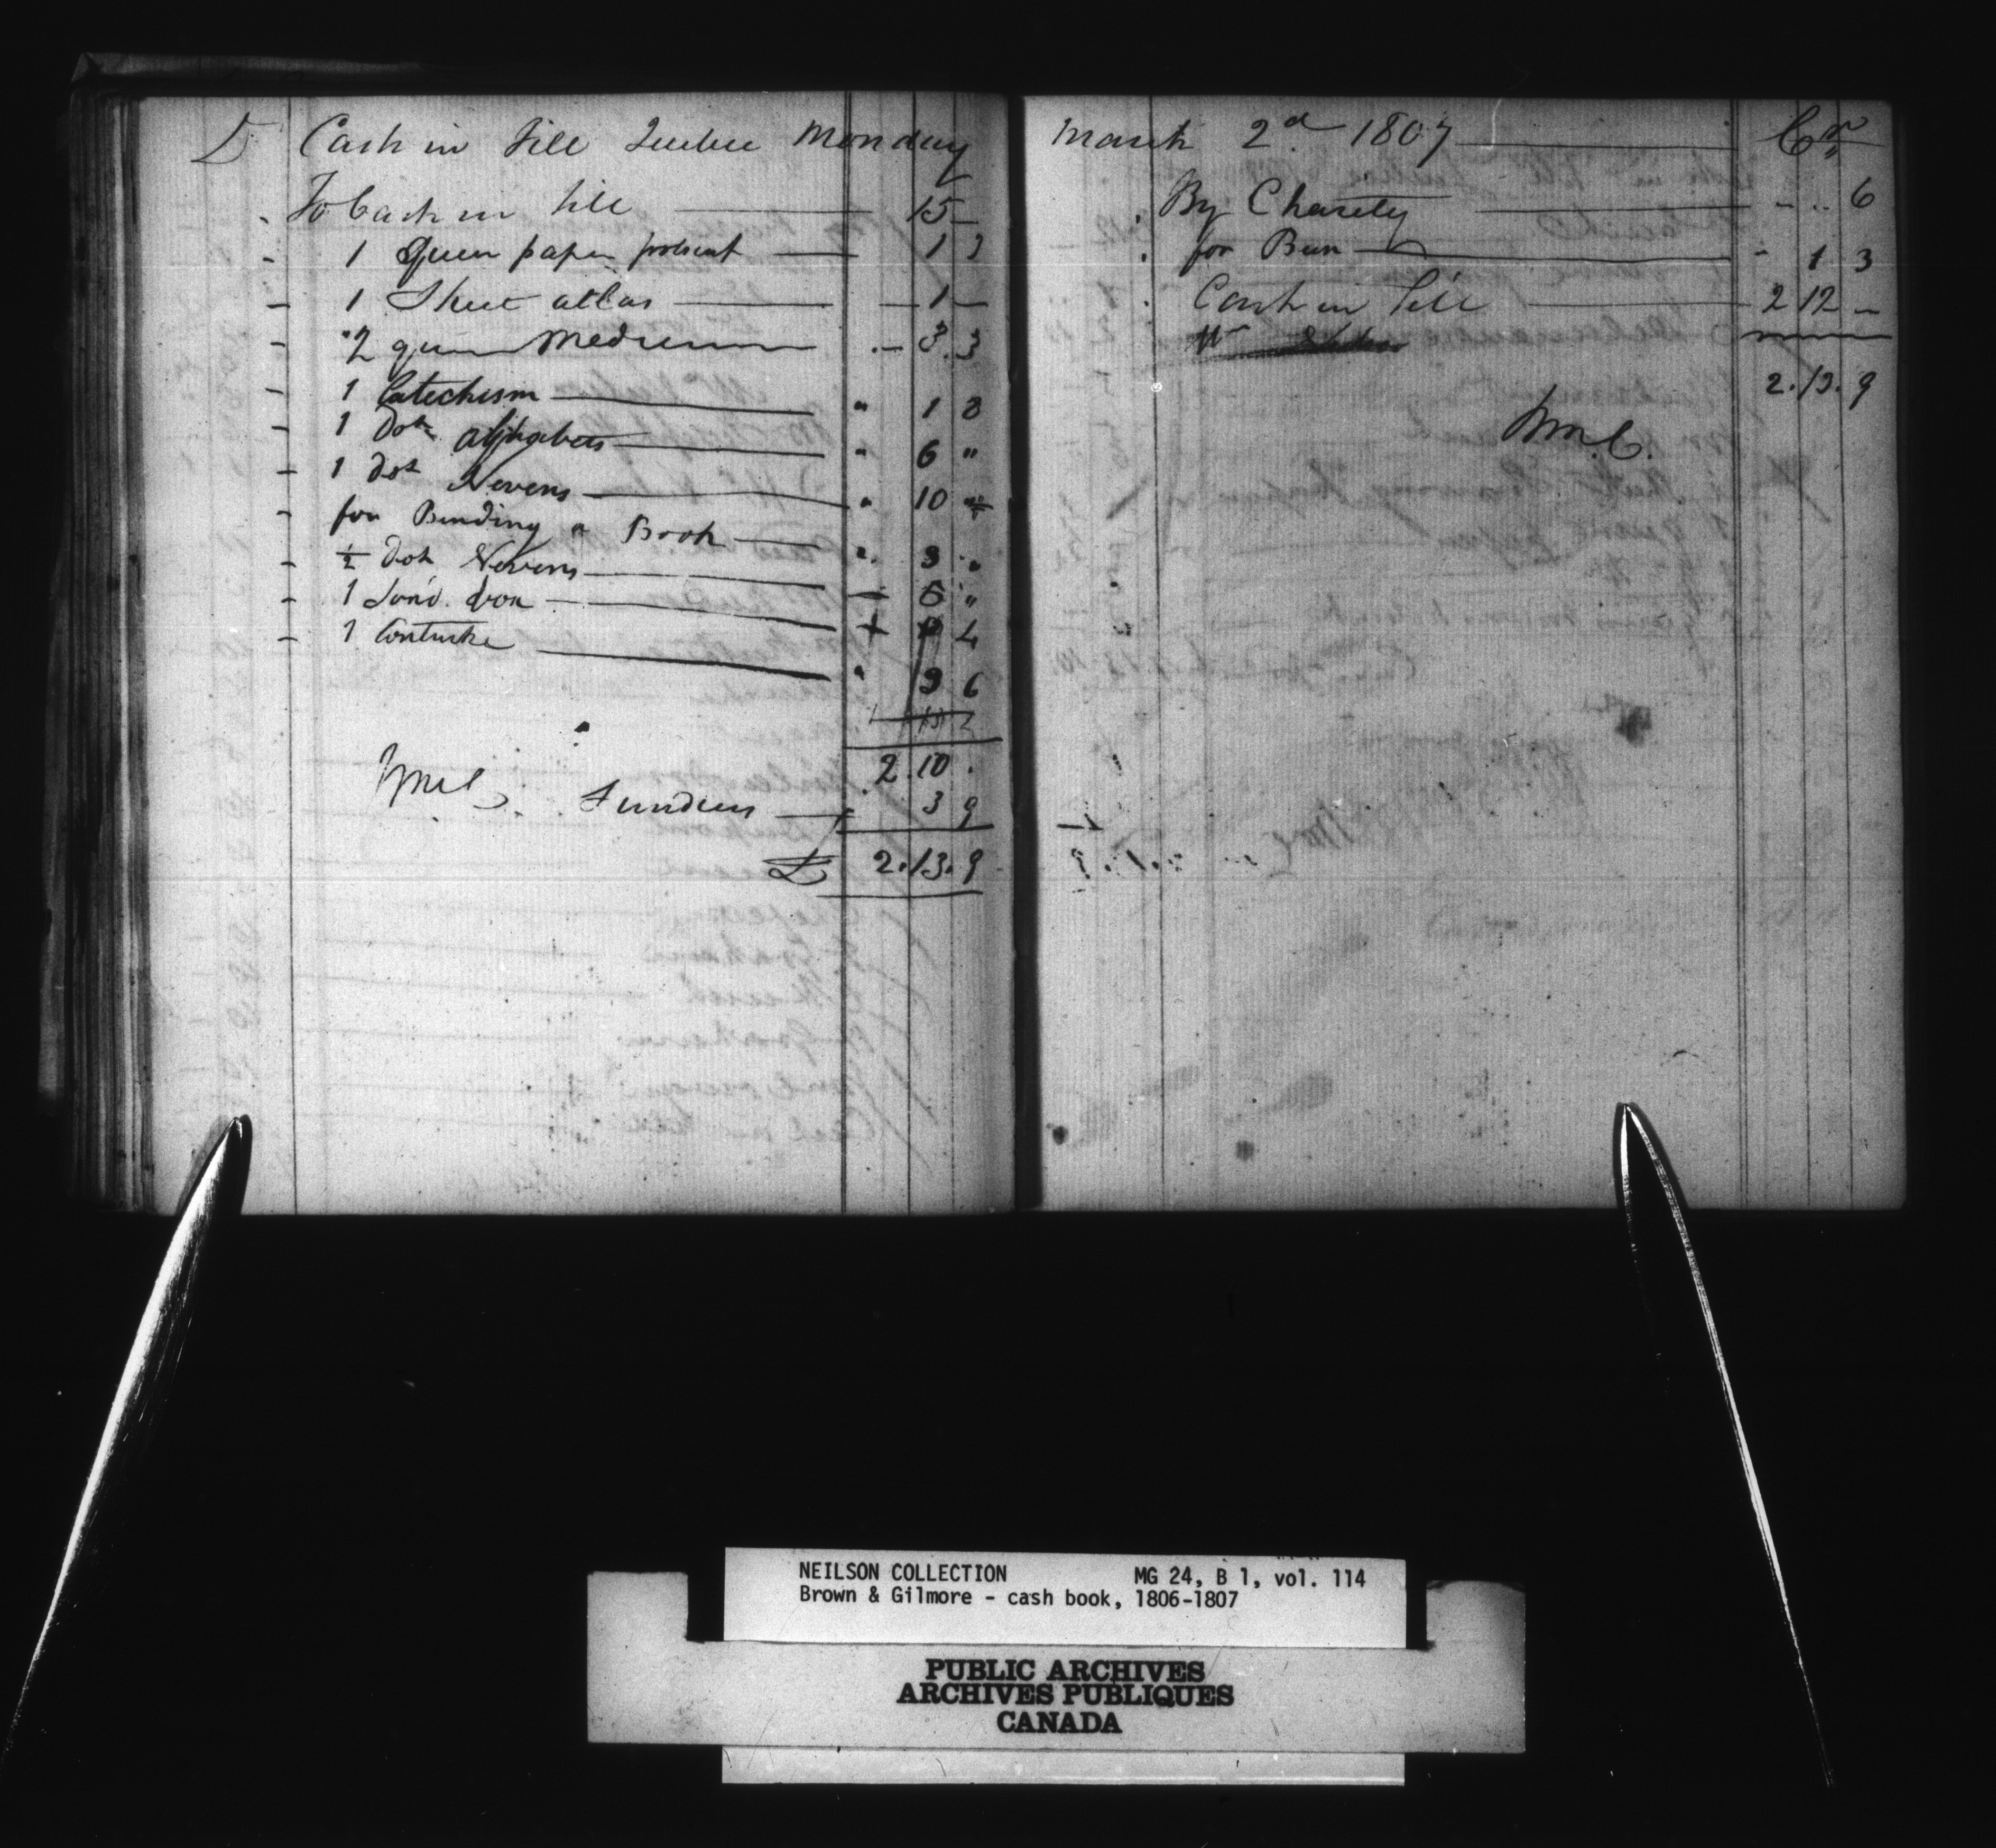 D Cash in Till Quebec Monday
To Cash in till 15 —
1 Quen paper present 1 3
1 Sheet atlas — 1 —
2 quen Medium 3. 3
1 Catechism " 1 8
1 Doz alphabets " 6 "
1 doz Nevens " 10
for Binding a Book " 3 "
½ doz Nevens 5 "
1 box 4
1 " 3 6
2. 10 .
WmC. Sundries 3 9
£ 2. 13. 9
March 2d 1807 Cr
By Charity - .. 6
for Bun - 1 3
Cash in Till 2 12 —
2. 13. 9
WmC.
NEILSON COLLECTION MG 24, B 1, vol. 114
Brown & Gilmore - cash book, 1806-1807
PUBLIC ARCHIVES
ARCHIVES PUBLIQUES
CANADA